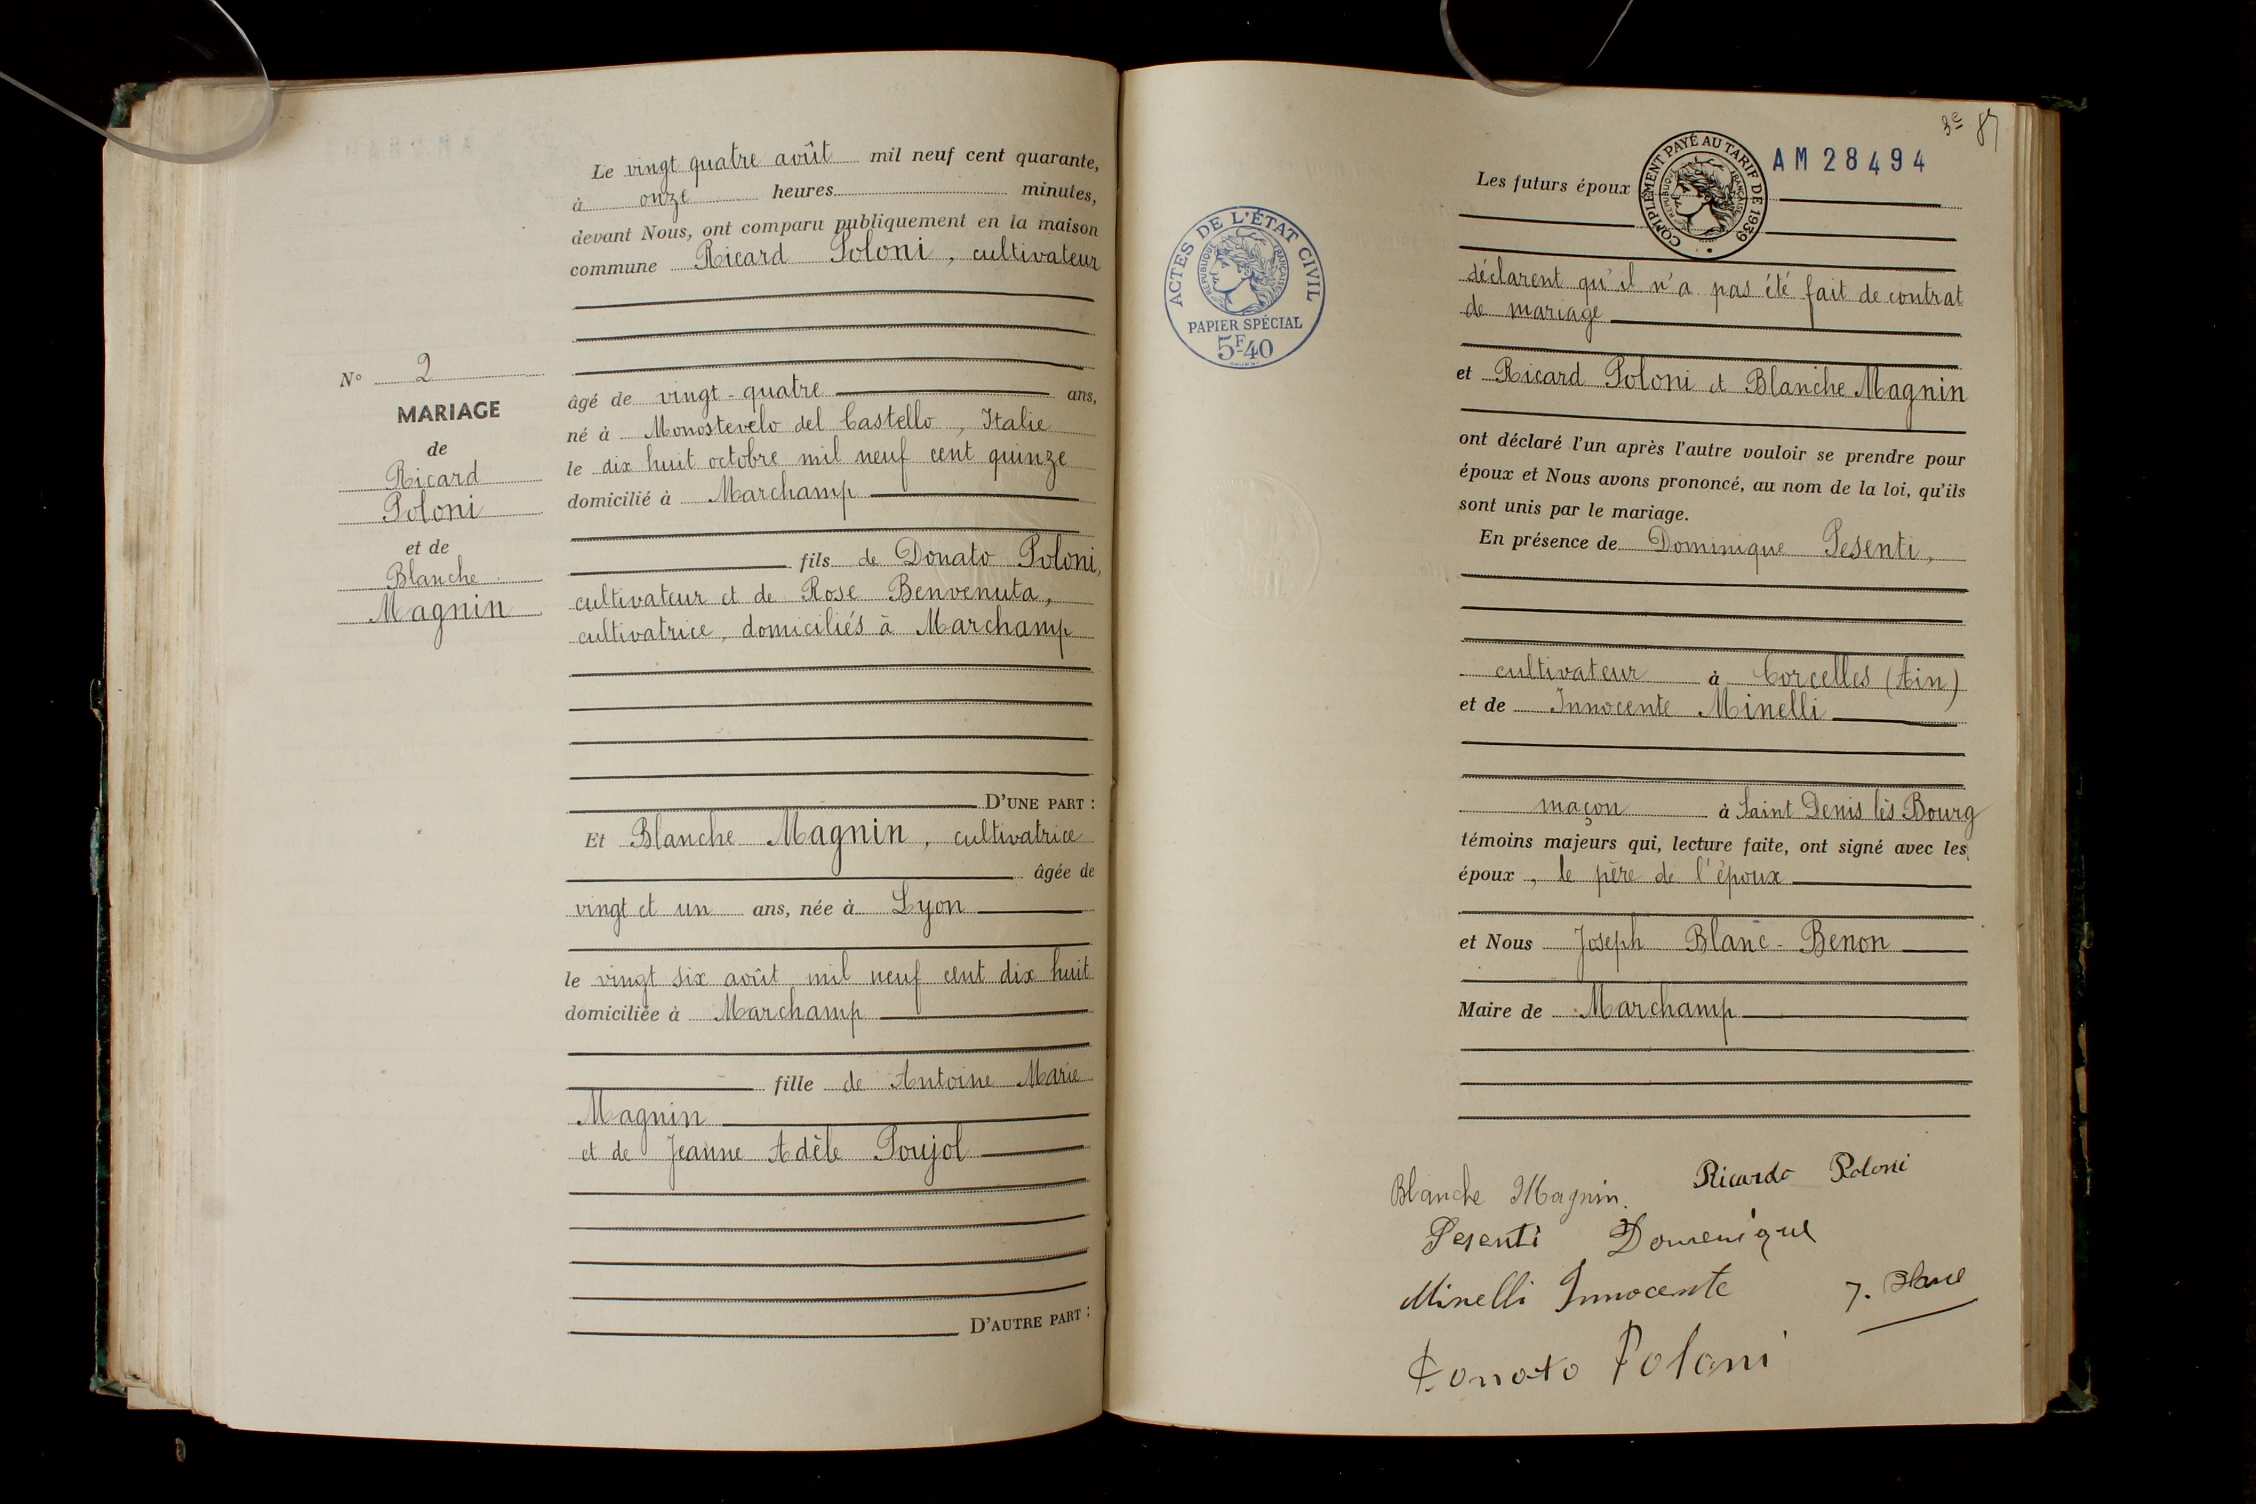 Le vingt quatre août mil neuf cent quarante,
à onze heures minutes,
devant Nous, ont comparu publiquement en la maison
commune Ricard Poloni, cultivateur
N° 2
MARIAGE
de
Ricard
Poloni
et de
Blanche
Magnin
âgé de vingt-quatre ans,
né à Monostevelo del Castello, Italie
le dix huit octobre mil neuf cent quinze
domicilié à Marchamp
fils de Donato Poloni,
cultivateur et de Rose Benvenuta,
cultivatrice, domiciliés à Marchamp
D'UNE PART :
Et Blanche Magnin, cultivatrice
âgée de
vingt et un ans, née à Lyon
le vingt six août mil neuf cent dix huit
domiciliée à Marchamp
fille de Antoine Marie
Magnin
et de Jeanne Adèle Poujol
D'AUTRE PART :
87
AM 28494
COMPLÉMENT PAYÉ AU TARIF DE 1939
RÉPUBLIQUE FRANÇAISE
ACTES DE L'ÉTAT CIVIL
RÉPUBLIQUE FRANÇAISE
PAPIER SPÉCIAL
5F40
Les futurs époux
déclarent qu'il n'a pas été fait de contrat
de mariage
et Ricard Poloni et Blanche Magnin
ont déclaré l'un après l'autre vouloir se prendre pour
époux et Nous avons prononcé, au nom de la loi, qu'ils
sont unis par le mariage.
En présence de Dominique Pesenti,
cultivateur à Corcelles (Ain)
et de Innocente Minelli
maçon à Saint Denis lès Bourg
témoins majeurs qui, lecture faite, ont signé avec les
époux, le père de l'époux
et Nous Joseph Blanc-Benon
Maire de Marchamp
Blanche Magnin.
Ricardo Poloni
Pesenti Domenique
Minelli Innocente
J. Blanc
Donato Poloni